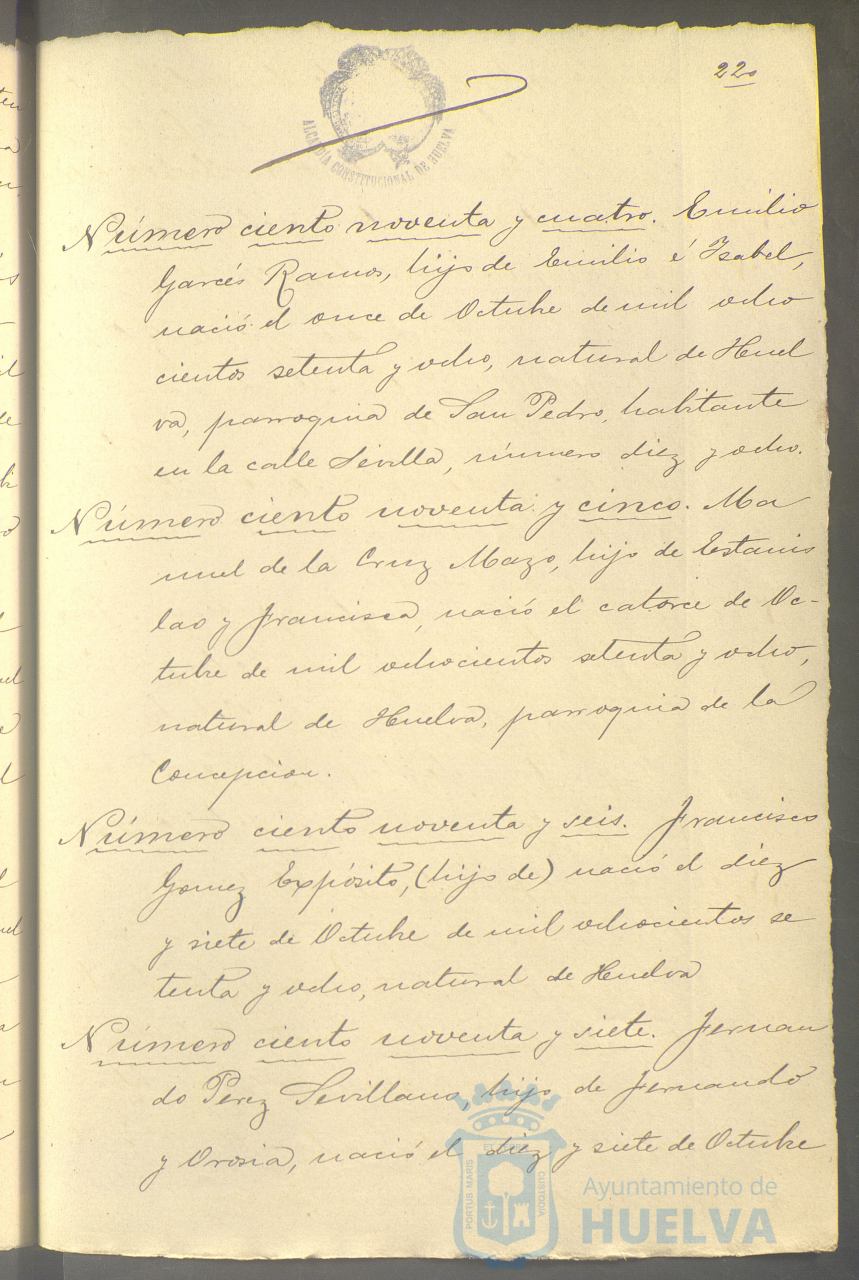 22
ALCALDÍA CONSTITUCIONAL DE HUELVA
Número ciento noventa y cuatro. Emilio
Garcés Ramos, hijo de Emilio é Isabel,
nació el once de Octubre de mil ocho
cientos setenta y ocho, natural de Huel
va, parroquia de San Pedro, habitante
en la calle Sevilla, número diez y ocho.
Número ciento noventa y cinco. Ma
nuel de la Cruz Mazo, hijo de Estanis
lao y Francisca, nació el catorce de Oc-
tubre de mil ochocientos setenta y ocho,
natural de Huelva, parroquia de la
Concepcion.
Número ciento noventa y seis. Francisco
Gomez Expósito, (hijo de) nació el diez
y siete de Octubre de mil ochocientos se
tenta y ocho, natural de Huelva
Número ciento noventa y siete. Fernan
do Perez Sevillano, hijo de Fernando
y Orosia, nació el diez y siete de Octubre
PORTUS MARIS
CUSTODIA
Ayuntamiento de
HUELVA